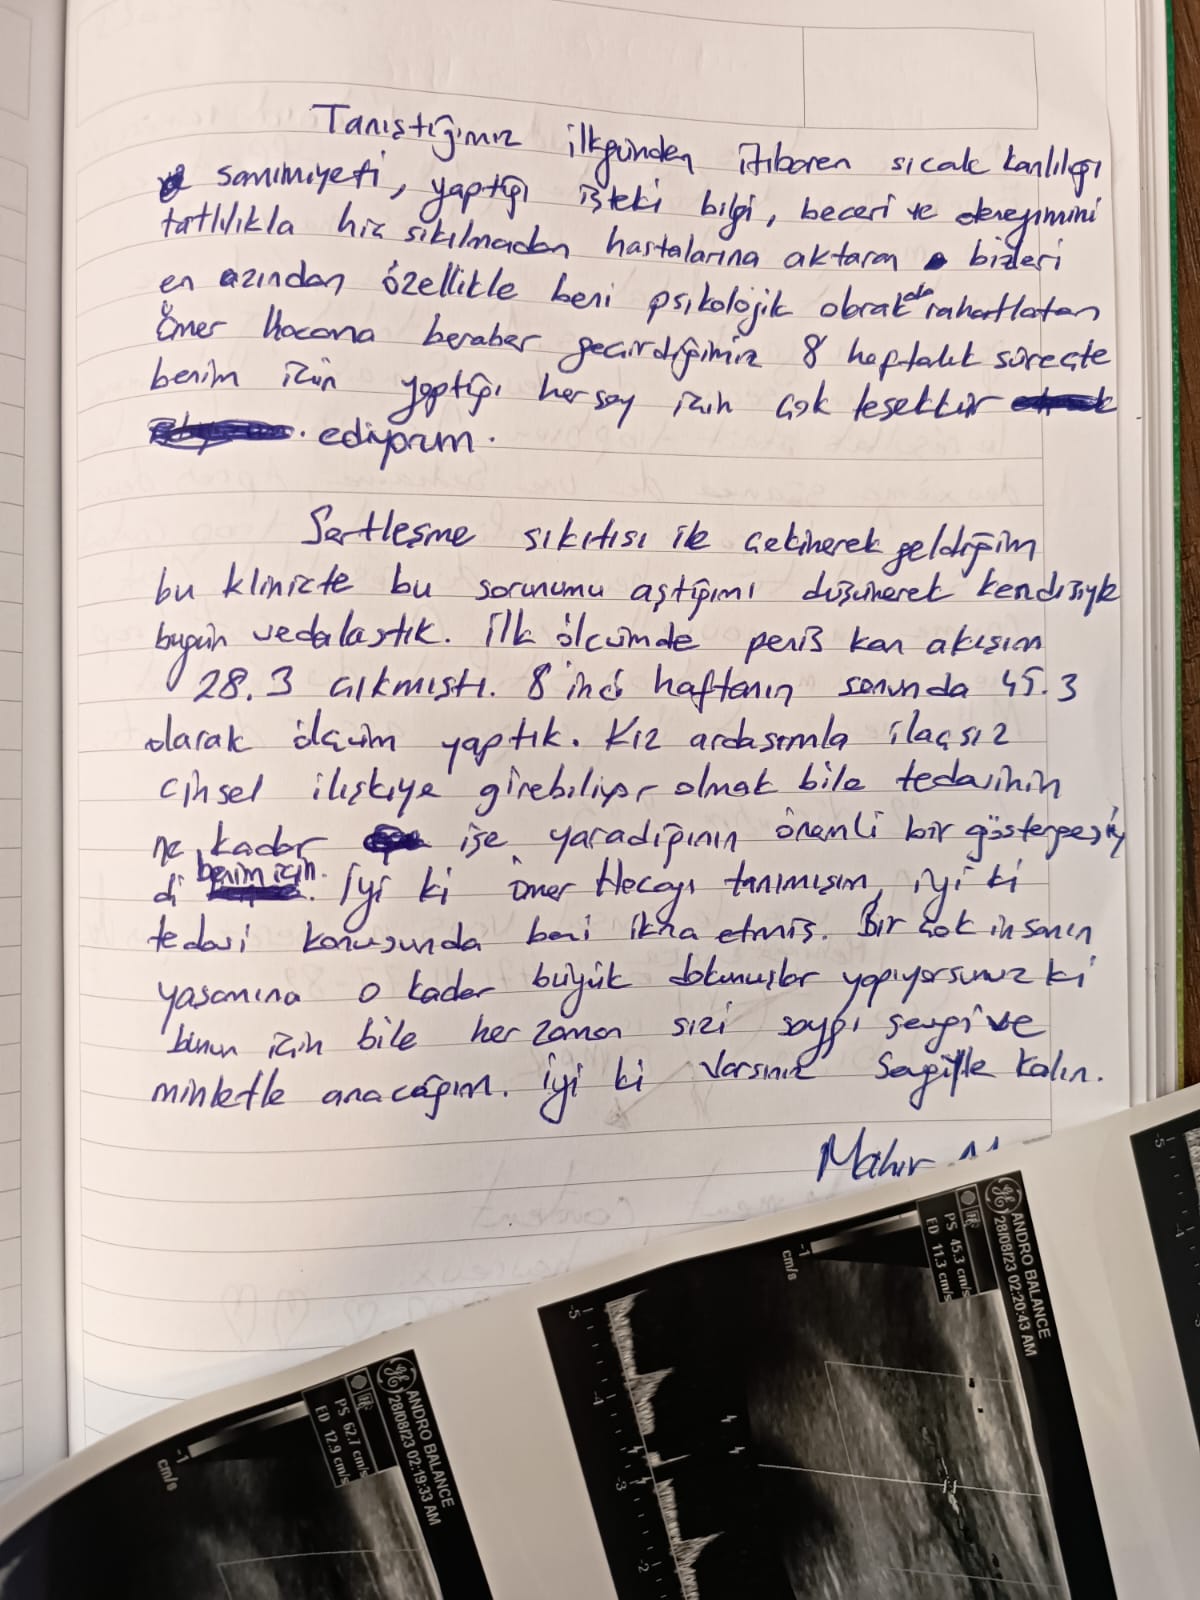 Tanıştığımız ilkgünden itibaren sıcak kanlılığı
samimiyeti, yaptığı işteki bilgi, beceri ve deneyimini
tatlılıkla hiç sıkılmadan hastalarına aktaran bizleri
en azından özellikle beni psikolojik olarak da rahatlatan
Ömer Hocama beraber geçirdiğimiz 8 haftalık süreçte
benim için yaptığı herşey için çok teşekkür
ediyorum.
Sertleşme sıkıtısı ile çekinerek geldiğim
bu klinikte bu sorunumu aştığımı düşünerek kendisiyle
bugün vedalaştık. İlk ölçümde penis kan akışım
28.3 çıkmıştı. 8 inci haftanın sonunda 45.3
olarak ölçüm yaptık. Kız ardaşımla ilaçsız
cinsel ilişkiye girebiliyor olmak bile tedavinin
ne kadar işe yaradığının önemli bir göstergesiy
di benim için. İyi ki Ömer Hocayı tanımışım, iyi ki
tedavi konusunda beni ikna etmiş. Bir çok insanın
yaşamına o kadar büyük dokunuşlar yapıyorsunuz ki
bunun için bile her zaman sizi saygı sevgi ve
minnetle anacağım. İyi ki varsınız Sevgiyle kalın.
Mahir
ANDRO BALANCE
28/08/23 02:20:43 AM
PS 45.3 cm/s
ED 11.3 cm/s
-1
cm/s
-5
-4
-3
-2
ANDRO BALANCE
28/08/23 02:19:33 AM
PS 62.7 cm/s
ED 12.9 cm/s
-1
cm/s
-5
-4